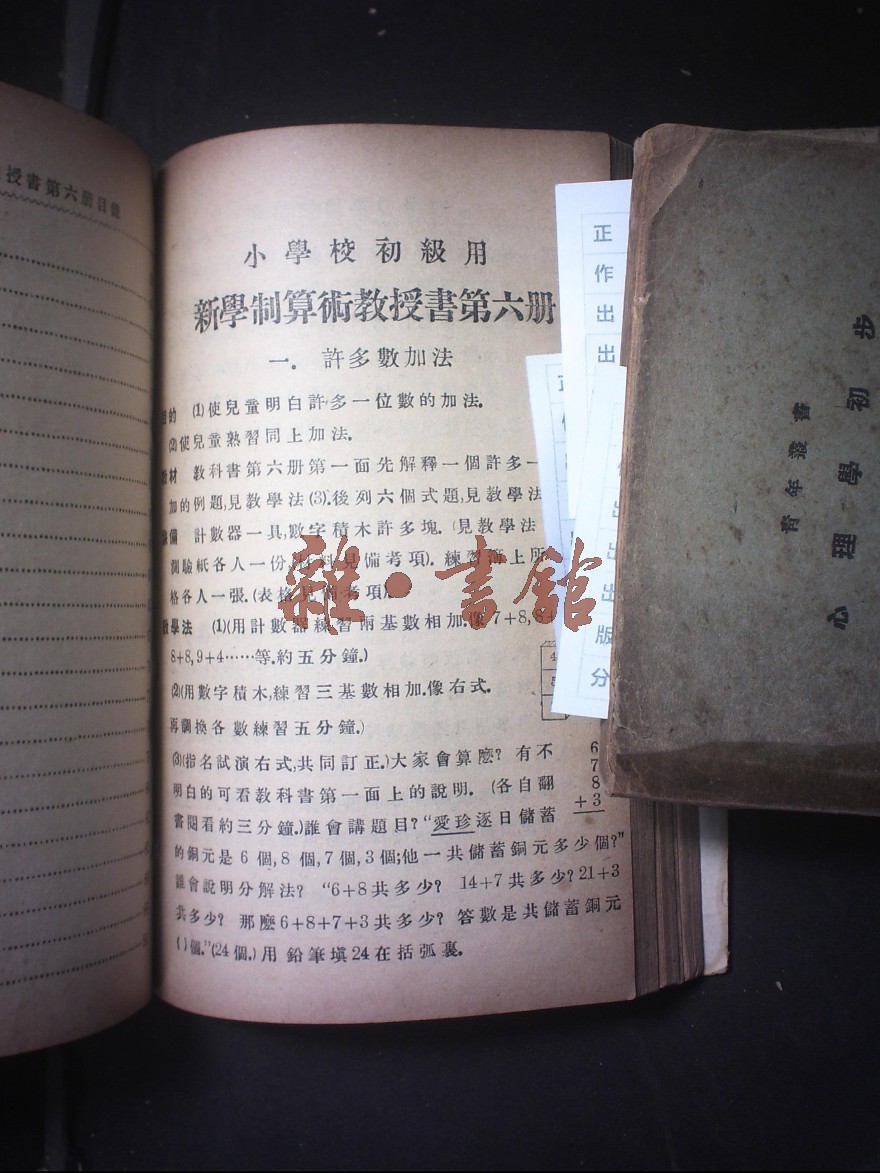 授書第六册目錄
小學校初級用
新學制算術教授書第六册
一. 許多數加法
的 (1)使兒童明白許多一位數的加法.
(2)使兒童熟習同上加法.
教材 教科書第六册第一面先解釋一個許多一
加的例題,見教學法(3).後列六個式題,見教學法
備 計數器一具,數字積木許多塊. (見教學法
測驗紙各人一份,材料見備考項). 練習簿上所
格各人一張. (表格見備考項.
教學法 (1)(用計數器練習兩基數相加.像 7+8,8+
8+8,9+4……等.約五分鐘.)
(2)(用數字積木,練習三基數相加.像右式.
再調換各數練習五分鐘.)
4
(3)(指名試演右式,共同訂正.)大家會算麼? 有不
明白的可看教科書第一面上的說明. (各自翻
書閱看約三分鐘.)誰會講題目? “愛珍逐日儲蓄
的銅元是 6 個, 8 個, 7 個, 3 個;他一共儲蓄銅元多少個?”
誰會說明分解法? “6+8共多少? 14+7共多少? 21+3
共多少? 那麼6+8+7+3共多少? 答數是共儲蓄銅元
( )個.”(24個.)用鉛筆填24在括弧裏.
6
7
8
+3
雜·書館
正作出出
出出版分
青年叢書
心理學初步